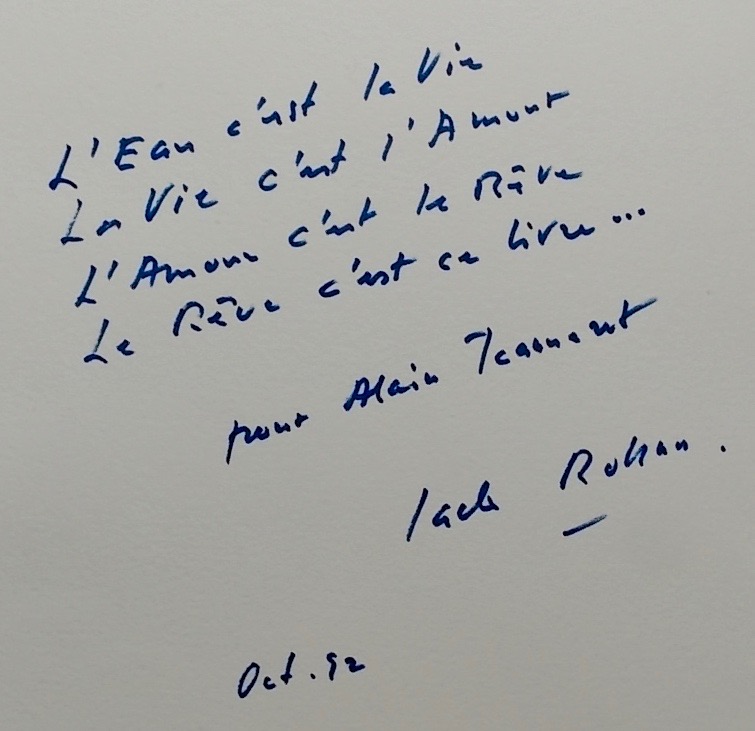 L'Eau c'est la Vie
La Vie c'est l'Amour
L'Amour c'est le Rêve
Le Rêve c'est ce livre...
pour Alain
Jack Rohan.
Oct. 92